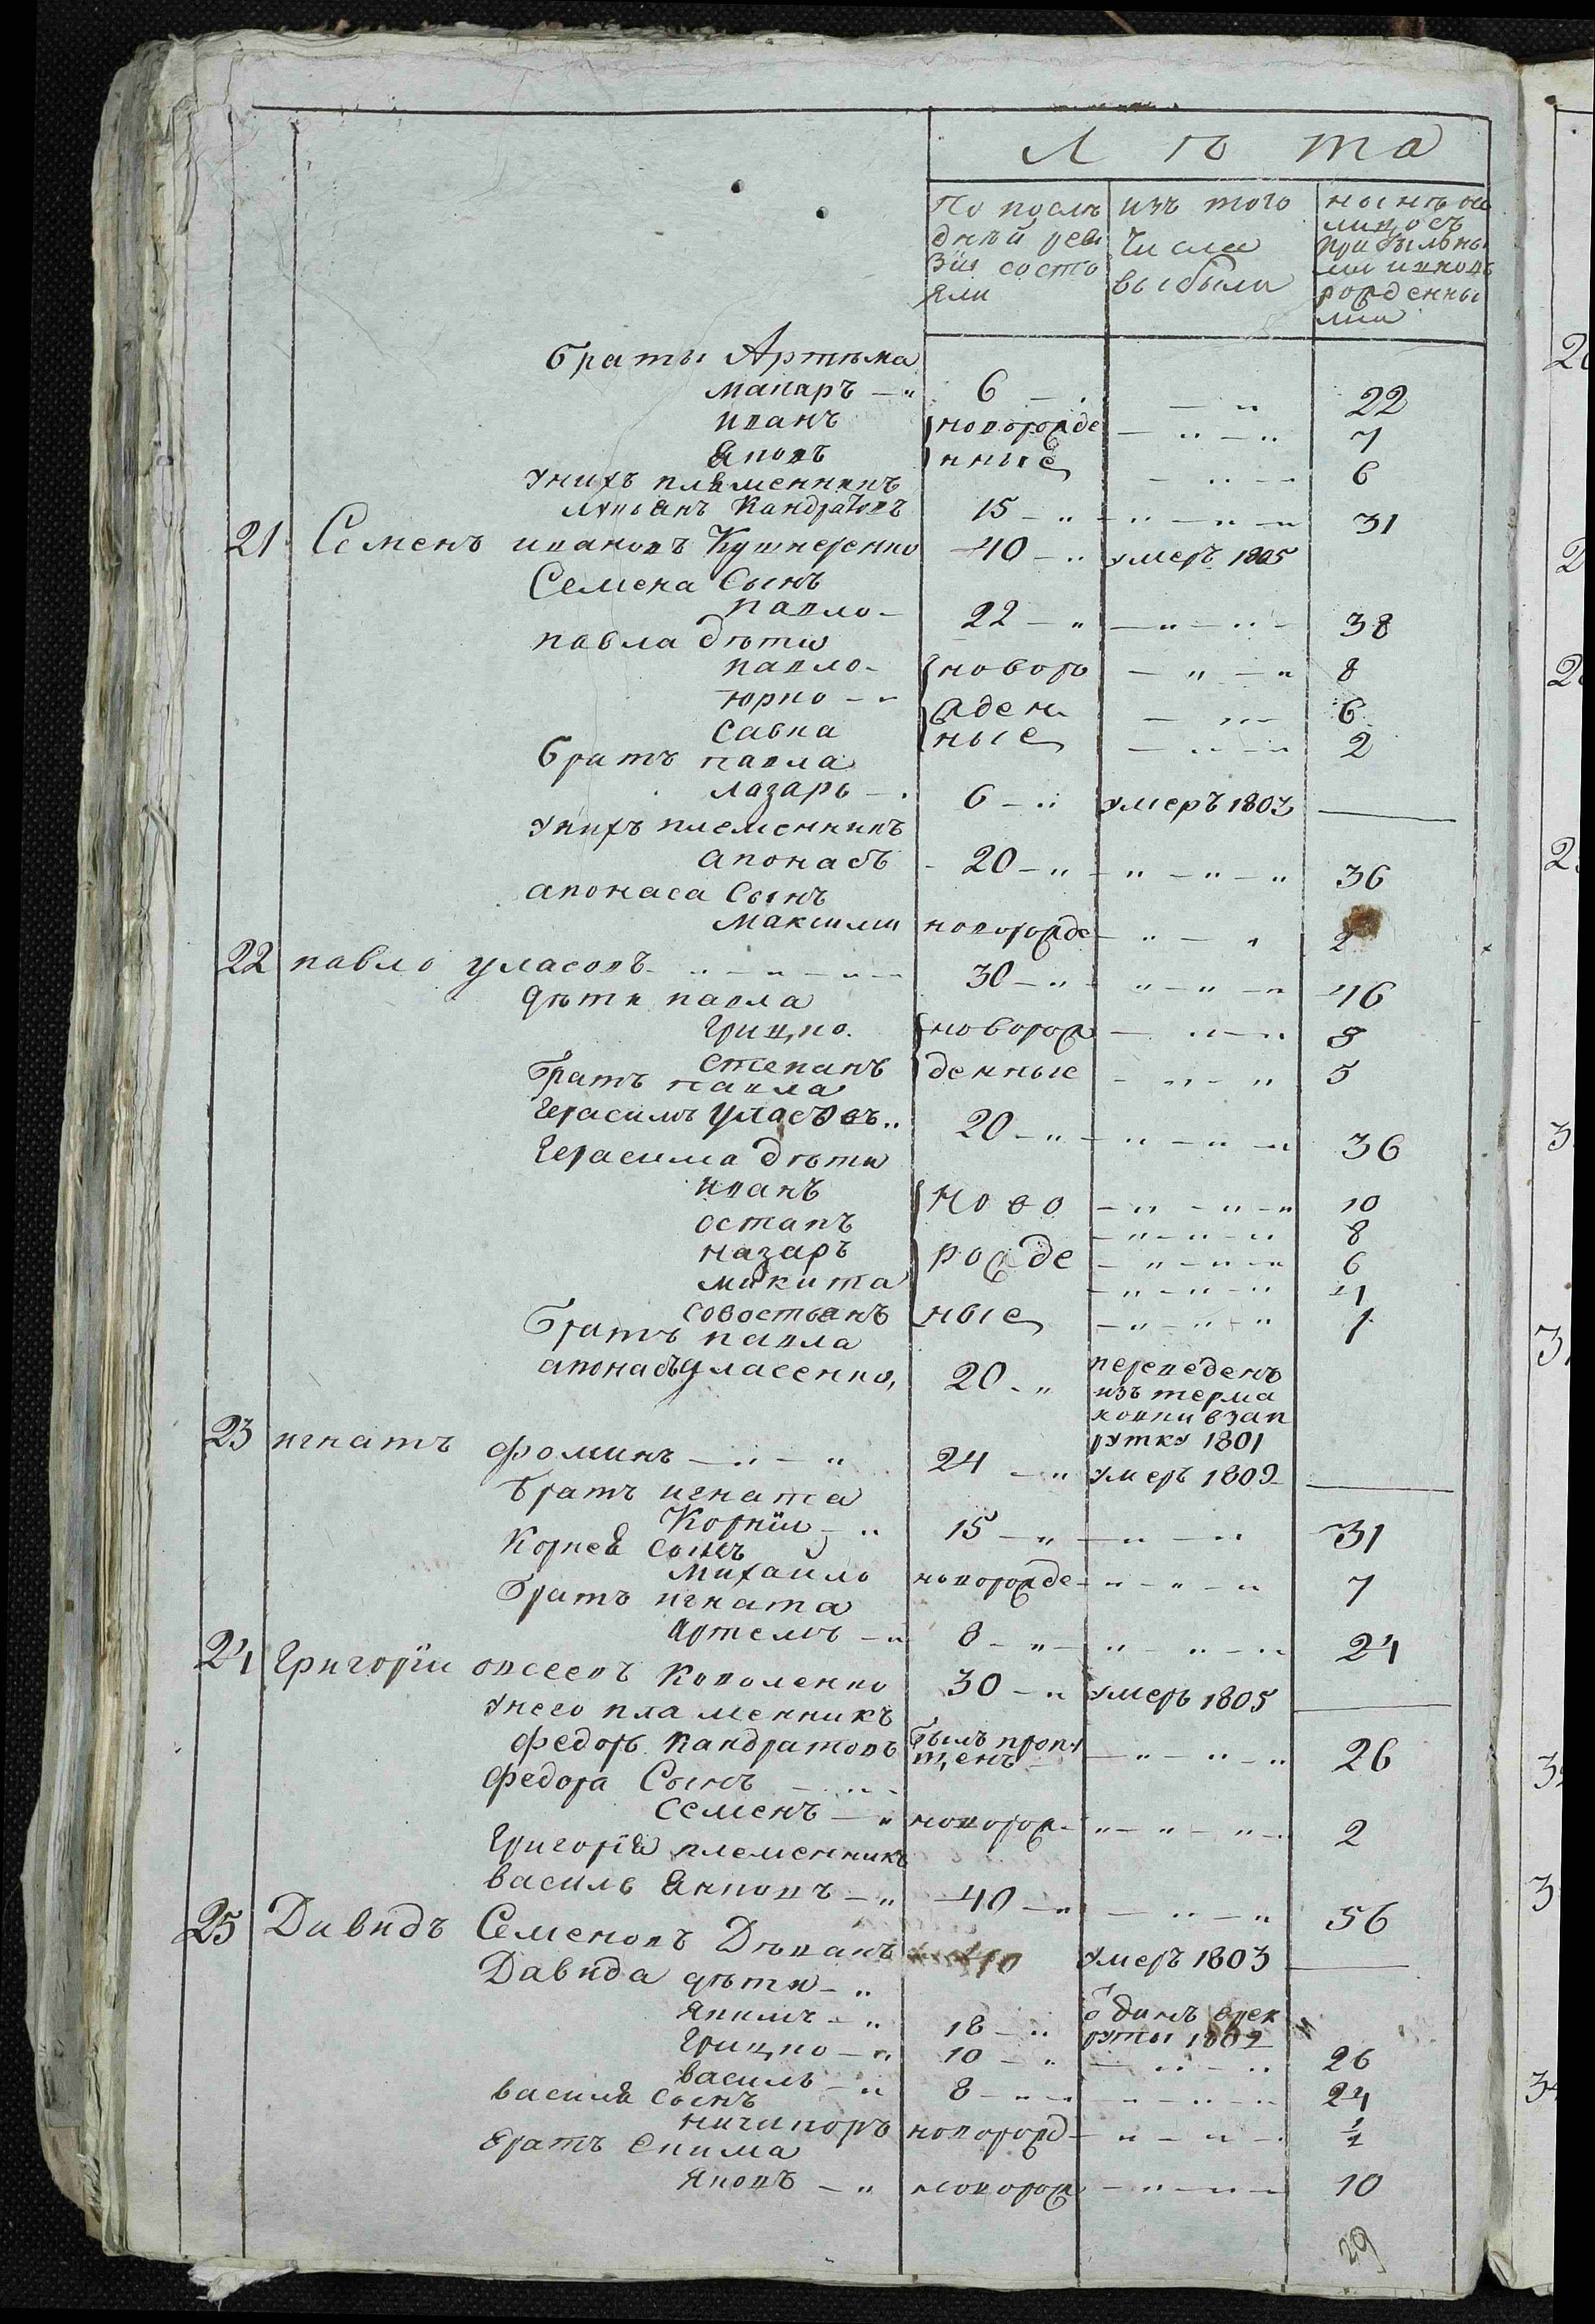 Лѣта
По послѣ
дней реви
зіи состо
яли
изъ того
числа
выбыли
нынѣ на
лицо съ
прибылы
ми и новь
рожденны
ми
браты Артема
макаръ 6 22
иванъ новорожде 7
яковъ нные 6
у нихъ племенникъ
лукьянъ Кандратовъ 15 31
21 Семенъ ивановъ Кушнеренко 40 умеръ 1805
Семена Сынъ
павло 22 38
павла дѣти
павло новоро 8
юрко жден 6
савка ные 2
братъ павла
лазарь 6 умеръ 1803
у нихъ племенникъ
апонасъ 20 36
апонаса Сынъ
максими новорожде 2
22 павло уласовъ 30 46
дѣти павла
грицко новорож 8
степанъ денные 5
братъ павла
герасимъ уласовъ 20 36
герасима дѣти
иванъ ново 10
остапъ 8
назаръ рожде 6
микита 4
совостьянъ ные 1
братъ павла
апонасъ уласенко, 20 переведенъ
изъ терма
ковки взап
рутку 1801
23 игнатъ фоминъ 24 умеръ 1809
братъ игната
Корнiи 15 31
Корнея сынъ
михаило новорожде 7
братъ игната
артемъ 8 24
24 григорiи овсеевъ Коваленко 30 умеръ 1805
у него пламенникъ
федоръ кандратовъ былъ пропу
щенъ 26
федора Сынъ
семенъ новорож 2
григорiя племенникъ
василь янковъ 40 56
25 Давидъ Семеновъ Дѣканъ 40 умеръ 1803
Давида дѣти
якимъ 18 оданъ врек
руты 1802
грицко 10 26
василь 8 24
василя сынъ
ничипоръ новорожд ½
братъ екима
яковъ новорож 10
29